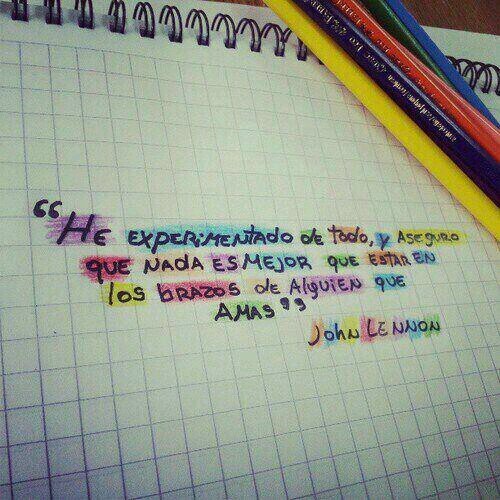 “He experimentado de todo, y aseguro
que nada es mejor que estar en
los brazos de alguien que
amas”
John Lennon